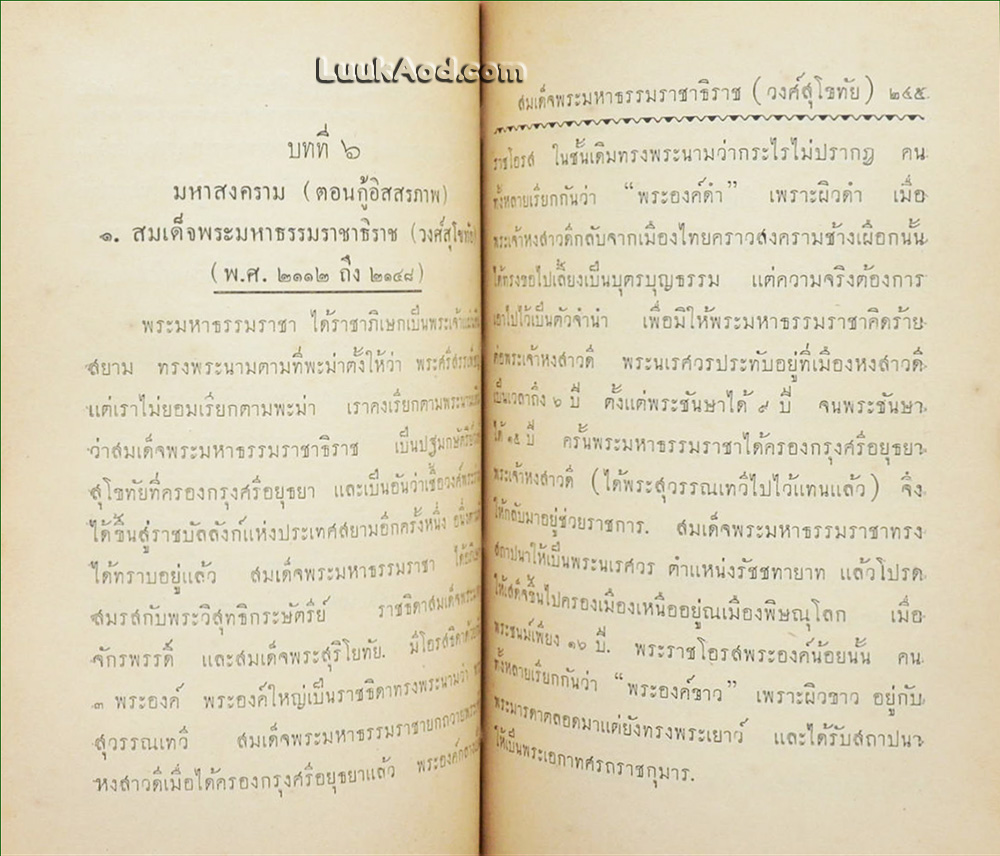 LuukAod.com
บทที่ ๖
มหาสงคราม (ตอนกู้อิสสรภาพ)
๑. สมเด็จพระมหาธรรมราชาธิราช (วงศ์สุโขทัย)
(พ.ศ. ๒๑๑๒ ถึง ๒๑๔๘)
พระมหาธรรมราชา ได้ราชาภิเษกเป็นพระเจ้าแผ่นดิน
สยาม ทรงพระนามตามที่พะม่าตั้งให้ว่า
แต่เราไม่ยอมเรียกตามพะม่า เราคงเรียกตามพระนามเดิม
ว่าสมเด็จพระมหาธรรมราชาธิราช เป็นปฐมกษัตริย์
สุโขทัยที่ครองกรุงศรีอยุธยา และเป็นอันว่าเชื้อวงศ์พระร่วง
ได้ขึ้นสู่ราชบัลลังก์แห่งประเทศสยามอีกครั้งหนึ่ง อนึ่ง
ได้ทราบอยู่แล้ว สมเด็จพระมหาธรรมราชา ได้อภิเษก
สมรสกับพระวิสุทธิกระษัตรีย์ ราชธิดาสมเด็จพระมหา
จักรพรรดิ์ และสมเด็จพระสุริโยทัย. มีโอรสธิดาด้วยกัน
๓ พระองค์ พระองค์ใหญ่เป็นราชธิดาทรงพระนามว่า
สุวรรณเทวี สมเด็จพระมหาธรรมราชายกถวายพระเจ้า
หงสาวดีเมื่อได้ครองกรุงศรีอยุธยาแล้ว พระองค์กลาง
สมเด็จพระมหาธรรมราชาธิราช (วงศ์สุโขทัย) ๒๔๕
ราชโอรส ในชั้นเดิมทรงพระนามว่ากระไรไม่ปรากฏ คน
ทั้งหลายเรียกกันว่า “พระองค์ดำ” เพราะผิวดำ เมื่อ
พระเจ้าหงสาวดีกลับจากเมืองไทยคราวสงครามช้างเผือกนั้น
ได้ทรงขอไปเลี้ยงเป็นบุตรบุญธรรม แต่ความจริงต้องการ
เอาไปไว้เป็นตัวจำนำ เพื่อมิให้พระมหาธรรมราชาคิดร้าย
ต่อพระเจ้าหงสาวดี พระนเรศวรประทับอยู่ที่เมืองหงสาวดี
เป็นเวลาถึง ๖ ปี ตั้งแต่พระชันษาได้ ๙ ปี จนพระชันษา
ได้ ๑๕ ปี ครั้นพระมหาธรรมราชาได้ครองกรุงศรีอยุธยา
พระเจ้าหงสาวดี (ได้พระสุวรรณเทวีไปไว้แทนแล้ว) จึง
ให้กลับมาอยู่ช่วยราชการ. สมเด็จพระมหาธรรมราชาทรง
สถาปนาให้เป็นพระนเรศวร ตำแหน่งรัชชทายาท แล้วโปรด
ให้เสด็จขึ้นไปครองเมืองเหนืออยู่ณเมืองพิษณุโลก เมื่อ
พระชนม์เพียง ๑๖ ปี. พระราชโอรสพระองค์น้อยนั้น คน
ทั้งหลายเรียกกันว่า “พระองค์ขาว” เพราะผิวขาว อยู่กับ
พระมารดาตลอดมาแต่ยังทรงพระเยาว์ และได้รับสถาปนา
ให้เป็นพระเอกาทศรถราชกุมาร.